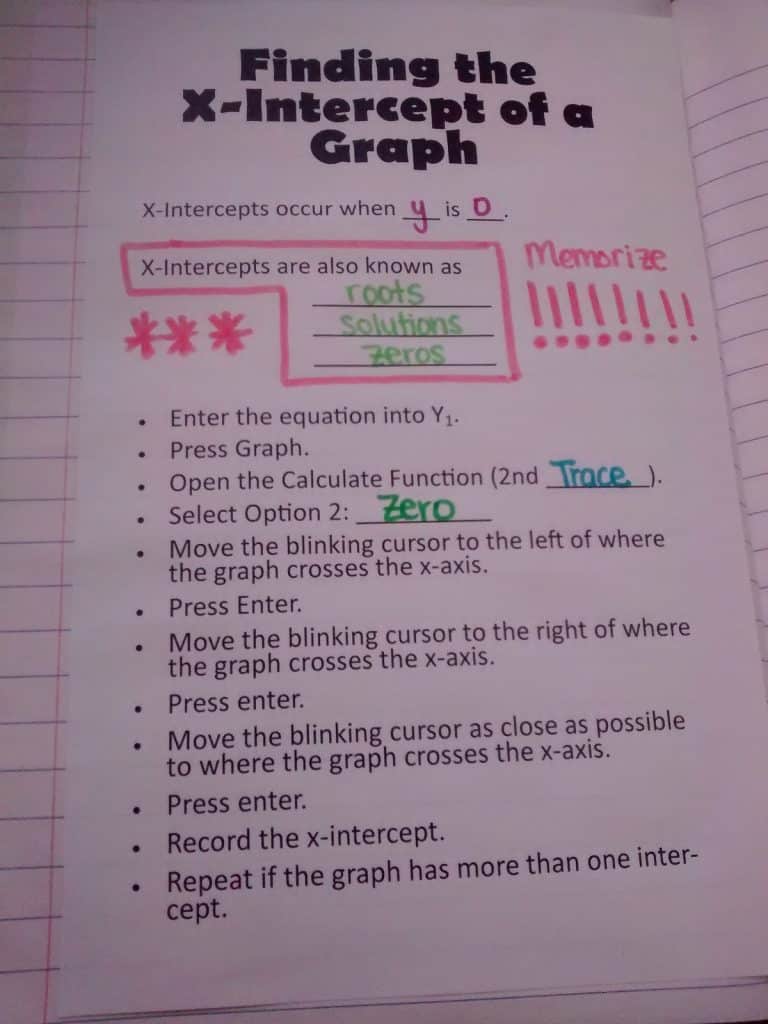 Finding the
X-Intercept of a
Graph
X-Intercepts occur when y is 0.
X-Intercepts are also known as
Memorize
roots
!!!!!!!!
*** solutions
zeros
• Enter the equation into Y₁.
• Press Graph.
• Open the Calculate Function (2nd Trace).
• Select Option 2: Zero
• Move the blinking cursor to the left of where
the graph crosses the x-axis.
• Press Enter.
• Move the blinking cursor to the right of where
the graph crosses the x-axis.
• Press enter.
• Move the blinking cursor as close as possible
to where the graph crosses the x-axis.
• Press enter.
• Record the x-intercept.
• Repeat if the graph has more than one inter-
cept.